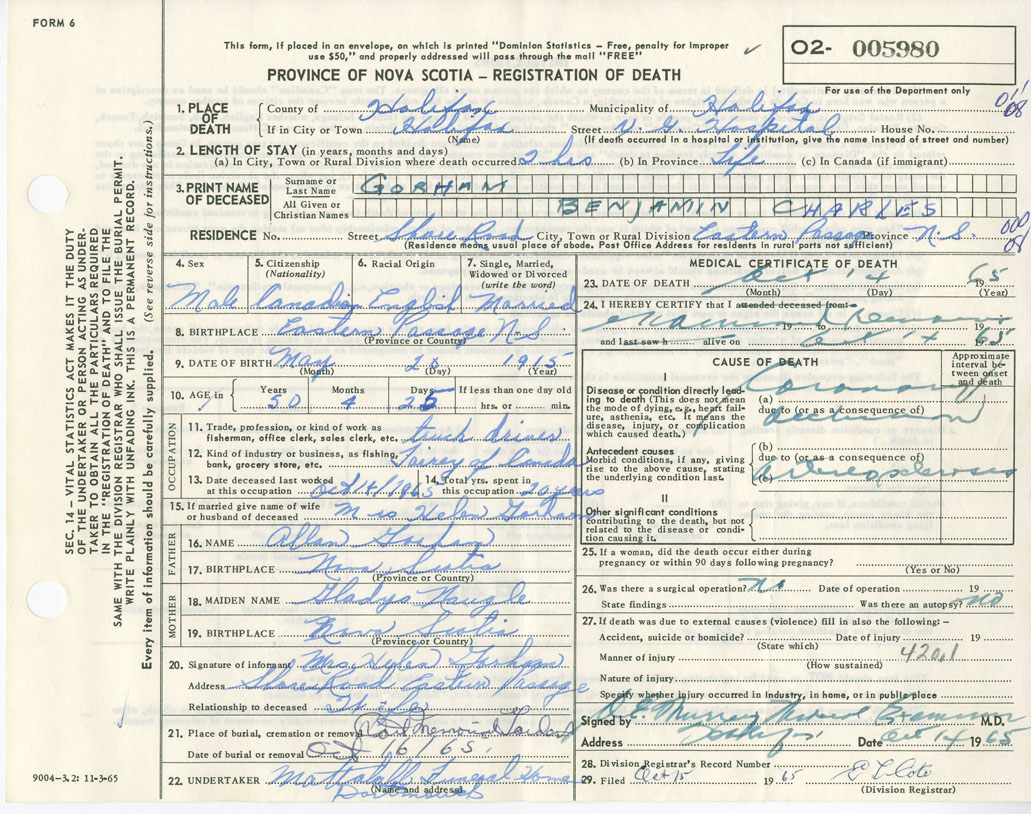 FORM 6
This form, if placed in an envelope, on which is printed "Dominion Statistics – Free, penalty for improper
use $50," and properly addressed will pass through the mail "FREE"
O2- 005980
For use of the Department only
PROVINCE OF NOVA SCOTIA – REGISTRATION OF DEATH
SEC. 14 – VITAL STATISTICS ACT MAKES IT THE DUTY
OF THE UNDERTAKER OR PERSON ACTING AS UNDER-
TAKER TO OBTAIN ALL THE PARTICULARS REQUIRED
IN THE "REGISTRATION OF DEATH" AND TO FILE THE
SAME WITH THE DIVISION REGISTRAR WHO SHALL ISSUE THE BURIAL PERMIT.
WRITE PLAINLY WITH UNFADING INK. THIS IS A PERMANENT RECORD.
Every item of information should be carefully supplied. (See reverse side for instructions.)
1. PLACE OF DEATH County of Halifax Municipality of Halifax
If in City or Town Halifax Street V. G. Hospital House No.
(Name) (If death occurred in a hospital or institution, give the name instead of street and number)
2. LENGTH OF STAY (in years, months and days)
(a) In City, Town or Rural Division where death occurred 2 hrs (b) In Province Life (c) In Canada (if immigrant)
3. PRINT NAME OF DECEASED Surname or Last Name GORHAM
All Given or Christian Names BENJAMIN CHARLES
RESIDENCE No. Street Shore Road City, Town or Rural Division Eastern Passage Province N.S.
(Residence means usual place of abode. Post Office Address for residents in rural parts not sufficient)
4. Sex 5. Citizenship (Nationality) 6. Racial Origin 7. Single, Married, Widowed or Divorced (write the word)
Male Canadian English Married
8. BIRTHPLACE Eastern Passage N.S.
(Province or Country)
9. DATE OF BIRTH May 20 1915
(Month) (Day) (Year)
10. AGE in Years 50 Months 4 Days 25 If less than one day old hrs. or min.
OCCUPATION
11. Trade, profession, or kind of work as fisherman, office clerk, sales clerk, etc. truck driver
12. Kind of industry or business, as fishing, bank, grocery store, etc. Fairey of Canada
13. Date deceased last worked at this occupation Oct 14/1965 14. Total yrs. spent in this occupation 20 years
15. If married give name of wife or husband of deceased Mrs Helen Gorham
FATHER
16. NAME Allan Gorham
17. BIRTHPLACE Nova Scotia
(Province or Country)
MOTHER
18. MAIDEN NAME Gladys Naugle
19. BIRTHPLACE Nova Scotia
(Province or Country)
20. Signature of informant Mrs. Helen Gorham
Address Shore Road Eastern Passage
Relationship to deceased Wife
21. Place of burial, cremation or removal Memorial Gardens
Date of burial or removal Oct 16/65.
22. UNDERTAKER Mattatall Funeral Home
(Name and address)
Dartmouth
9004–3.2: 11-3-65
MEDICAL CERTIFICATE OF DEATH
23. DATE OF DEATH Oct 14 1965
(Month) (Day) (Year)
24. I HEREBY CERTIFY that I attended deceased from:
examined remains 19 to 19
and last saw h alive on Oct 14 1965
CAUSE OF DEATH
Approximate interval between onset and death
I
Disease or condition directly leading to death (This does not mean the mode of dying, e.g., heart failure, asthenia, etc. It means the disease, injury, or complication which caused death.)
(a) Coronary
due to (or as a consequence of)
occlusion
Antecedent causes
Morbid conditions, if any, giving rise to the above cause, stating the underlying condition last.
(b)
due to (or as a consequence of)
(c) Arteriosclerosis
II
Other significant conditions
contributing to the death, but not related to the disease or condition causing it.
25. If a woman, did the death occur either during pregnancy or within 90 days following pregnancy?
(Yes or No)
26. Was there a surgical operation? No Date of operation 19
State findings Was there an autopsy? No
27. If death was due to external causes (violence) fill in also the following:–
Accident, suicide or homicide? Date of injury 19
(State which)
Manner of injury 420.1
(How sustained)
Nature of injury
Specify whether injury occurred in industry, in home, or in public place
Signed by D E Murray Medical Examiner M.D.
Address Date Oct 14 1965
28. Division Registrar's Record Number
29. Filed Oct 15 1965 E L Cote
(Division Registrar)